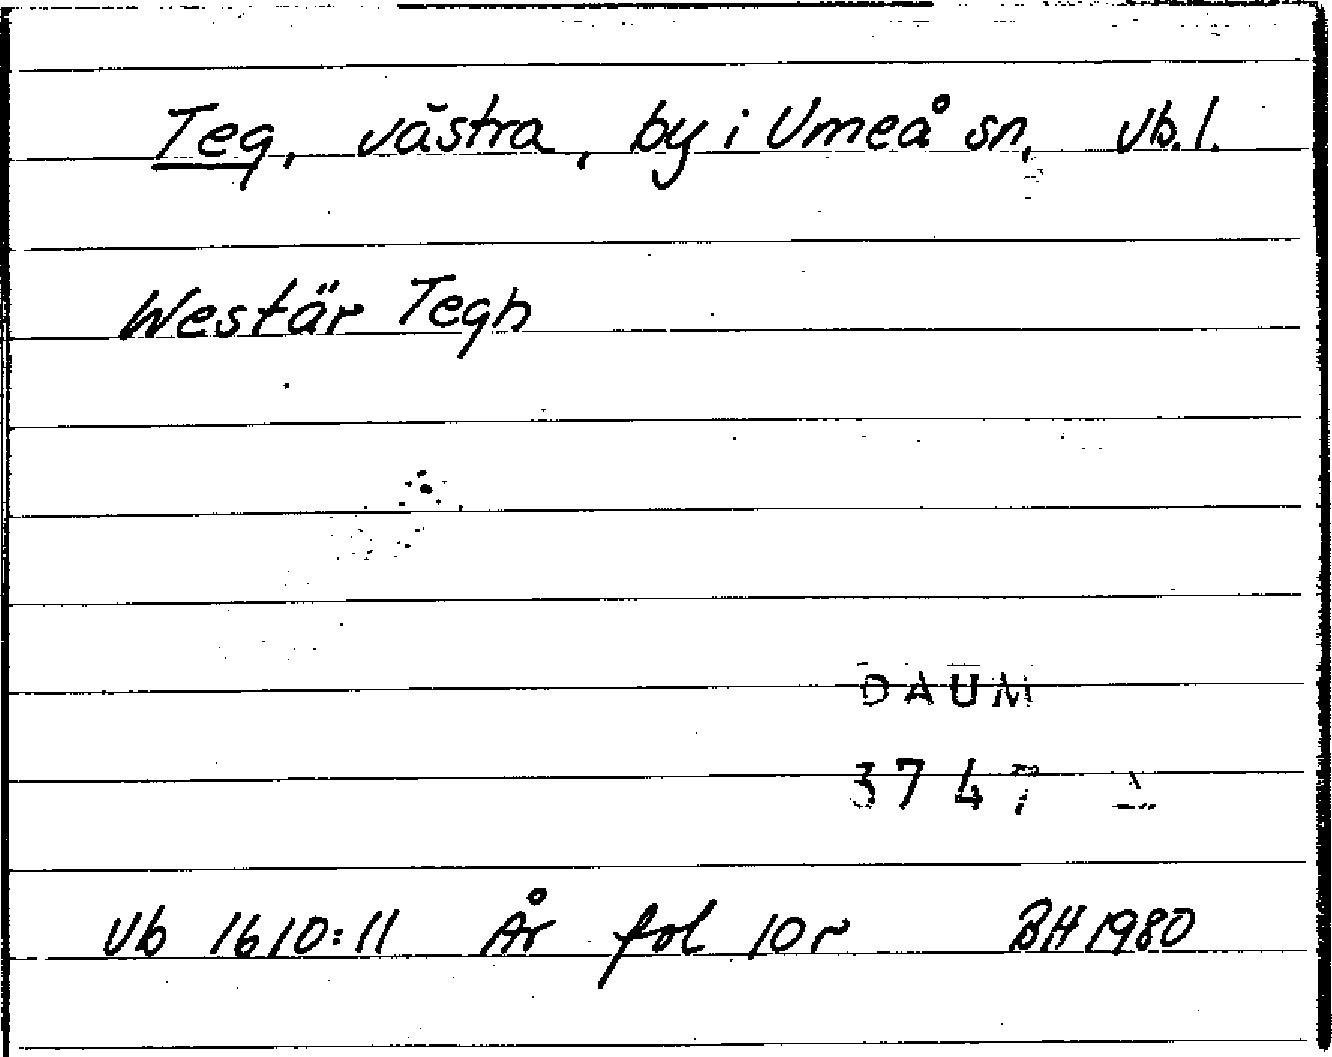 Teg, västra, by i Umeå sn, Vb. l.
Westär Tegh
DAUM
3747
Vb 1610:11 År fol 10 r BH 1980